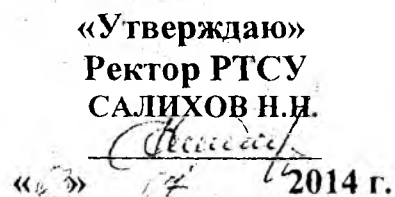 «Утверждаю»
Ректор РТСУ
САЛИХОВ Н.Н.
2014 г.